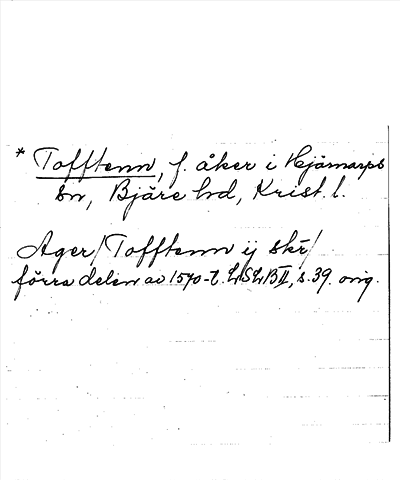 * Tofftenn, f. åker i Hjärnarps
sn, Bjäre hd, Krist. l.
Ager/Tofftenn ij skr/
förra delen av 1570-t. LSLBII, s. 39. orig.